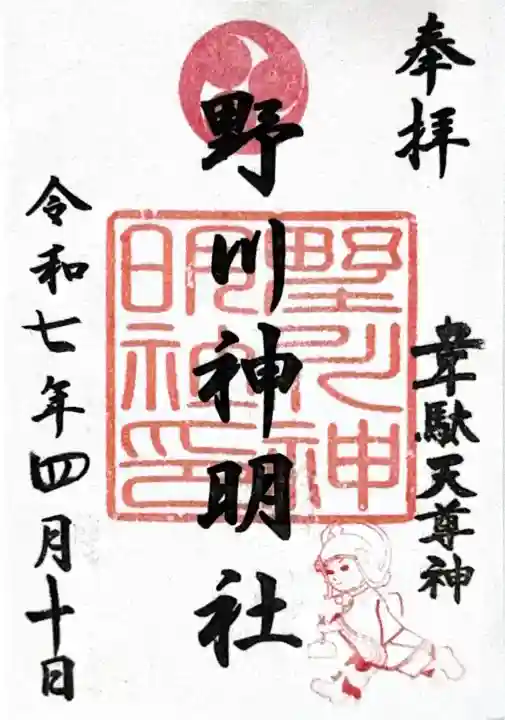 奉拝
韋駄天尊神
野川神明社
野川神
明神社印
令和七年四月十日